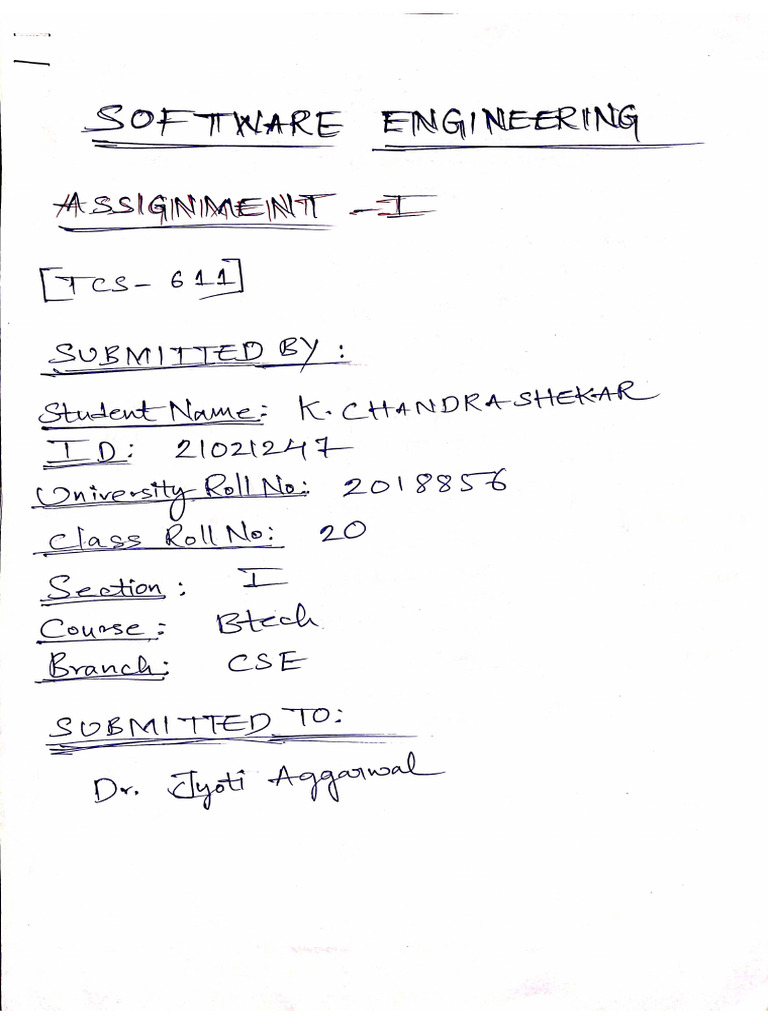 SOFTWARE ENGINEERING
ASSIGNMENT - I
[TCS- 611]
SUBMITTED BY :
Student Name: K. CHANDRA SHEKAR
ID: 21021247
University Roll No: 2018856
Class Roll No: 20
Section : I
Course : Btech
Branch: CSE
SUBMITTED TO:
Dr. Jyoti Aggarwal